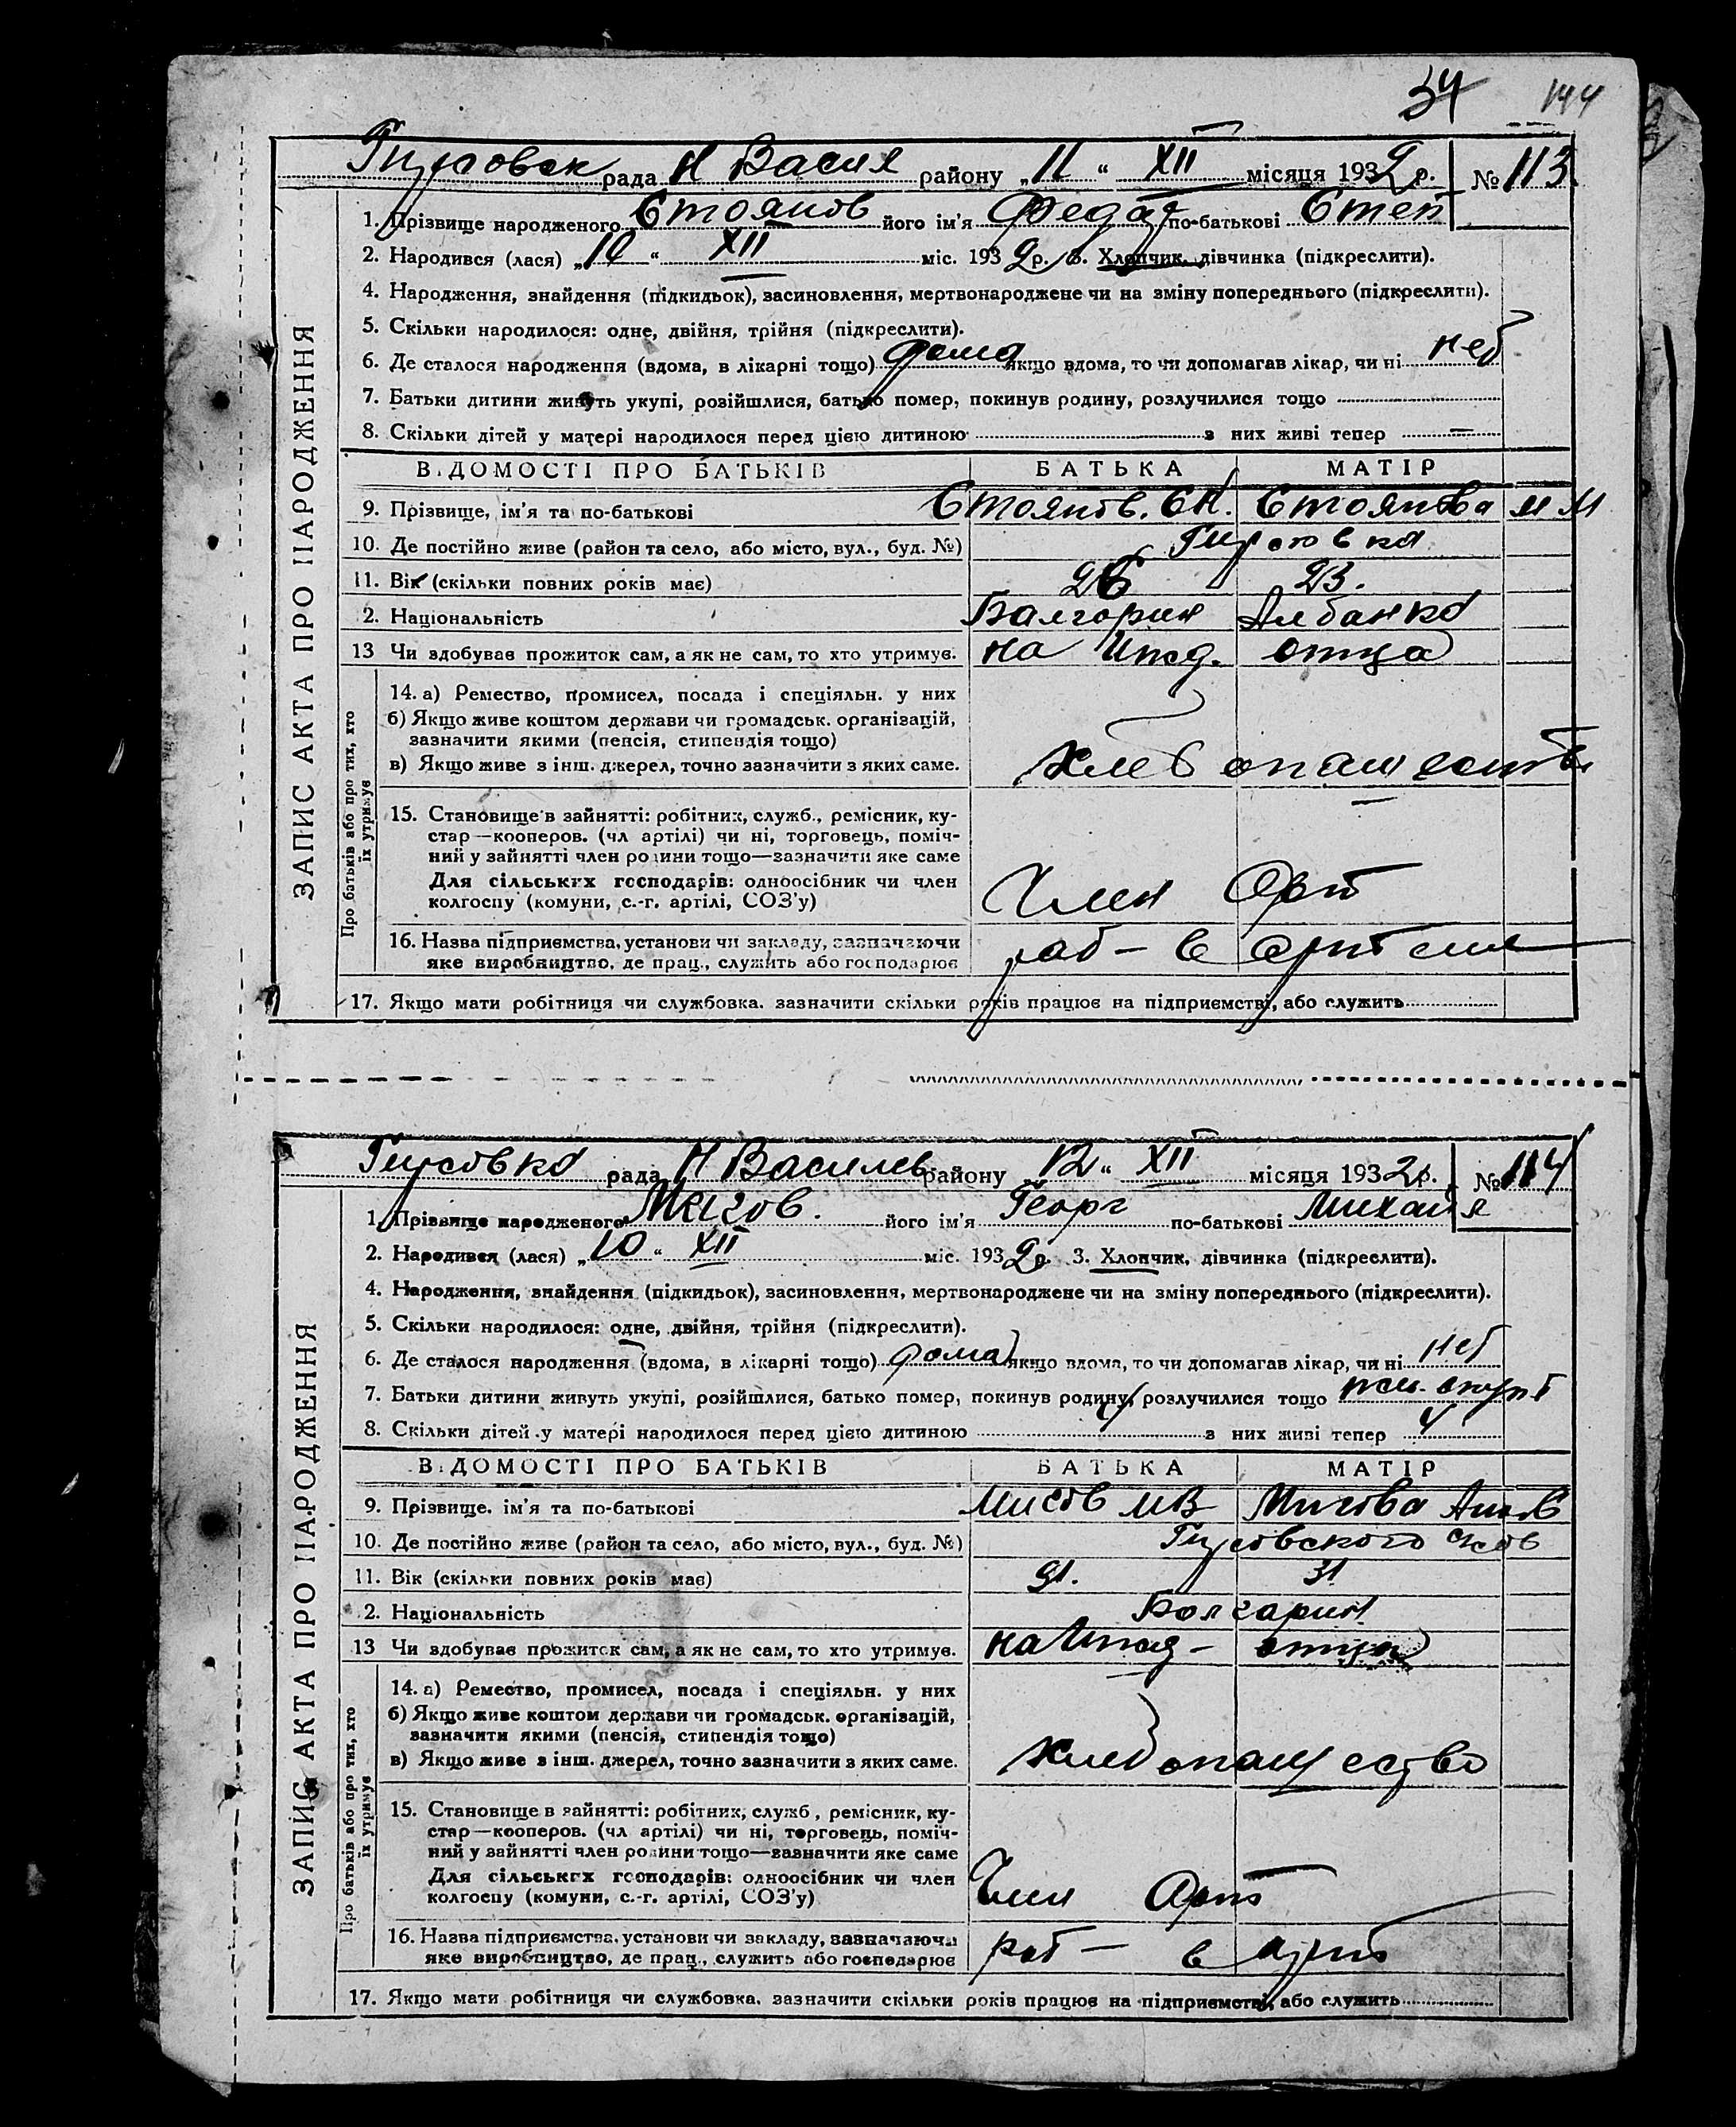 34 144
Гирсовск рада Н Васил району „11“ XII місяця 1932 р. № 113
1. Прізвище народженого Стоянов його ім'я Федор по-батькові Степ
2. Народився (лася) „10“ XII міс. 1932 р. 3. Хлопчик, дівчинка (підкреслити).
4. Народження, знайдення (підкидьок), засиновлення, мертвонароджене чи на зміну попереднього (підкреслити).
5. Скільки народилося: одне, двійня, трійня (підкреслити).
6. Де сталося народження (вдома, в лікарні тощо) дома якщо вдома, то чи допомагав лікар, чи ні нет
7. Батьки дитини живуть укупі, розійшлися, батько помер, покинув родину, розлучилися тощо
8. Скільки дітей у матері народилося перед цією дитиною з них живі тепер —
ЗАПИС АКТА ПРО НАРОДЖЕННЯ
ВІДОМОСТІ ПРО БАТЬКІВ БАТЬКА МАТІР
9. Прізвище, ім'я та по-батькові Стоянов. СН. Стоянова М М
10. Де постійно живе (район та село, або місто, вул., буд. №) Гирсовка
11. Вік (скільки повних років має) 26 23.
2. Національність Балгорин Албанка
13 Чи здобував прожиток сам, а як не сам, то хто утримує. на Ижд. отца
Про батьків або про тих, хто їх утримує
14. а) Ремество, промисел, посада і спеціяльн. у них
б) Якщо живе коштом держави чи громадськ. організацій,
зазначити якими (пенсія, стипендія тощо)
в) Якщо живе з інш. джерел, точно зазначити з яких саме. хлебопашество
15. Становище в зайнятті: робітник, служб., ремісник, ку-
стар—кооперов. (чл артілі) чи ні, торговець, поміч-
ний у зайнятті член родини тощо—зазначити яке саме
Для сільських господарів: одноосібник чи член
колгоспу (комуни, с.-г. артілі, СОЗ'у) Член Арт
16. Назва підприємства, установи чи закладу, зазначаючи
яке виробництво, де прац., служить або господарює раб – в артели
17. Якщо мати робітниця чи службовка, зазначити скільки років працює на підприємстві, або служить
Гирсовка рада Н Василев району 12“ XII місяця 1932 р. № 114
1. Прізвище народженого Мигов. його ім'я Георг по-батькові Михайл
2. Народився (лася) „10“ XII міс. 1932 р. 3. Хлопчик, дівчинка (підкреслити).
4. Народження, знайдення (підкидьок), засиновлення, мертвонароджене чи на зміну попереднього (підкреслити).
5. Скільки народилося: одне, двійня, трійня (підкреслити).
6. Де сталося народження (вдома, в лікарні тощо) дома якщо вдома, то чи допомагав лікар, чи ні нет
7. Батьки дитини живуть укупі, розійшлися, батько помер, покинув родину, розлучилися тощо
8. Скільки дітей у матері народилося перед цією дитиною з них живі тепер 4
ЗАПИС АКТА ПРО НАРОДЖЕННЯ
ВІДОМОСТІ ПРО БАТЬКІВ БАТЬКА МАТІР
9. Прізвище, ім'я та по-батькові МВ Мигова
10. Де постійно живе (район та село, або місто, вул., буд. №) Гирсовского
11. Вік (скільки повних років має) 31
2. Національність Болгарин
13 Чи здобував прожиток сам, а як не сам, то хто утримує. на Ижд – отца
Про батьків або про тих, хто їх утримує
14. а) Ремество, промисел, посада і спеціяльн. у них
б) Якщо живе коштом держави чи громадськ. організацій,
зазначити якими (пенсія, стипендія тощо)
в) Якщо живе з інш. джерел, точно зазначити з яких саме. хлебопащество
15. Становище в зайнятті: робітник, служб., ремісник, ку-
стар—кооперов. (чл артілі) чи ні, торговець, поміч-
ний у зайнятті член родини тощо—зазначити яке саме
Для сільських господарів: одноосібник чи член
колгоспу (комуни, с.-г. артілі, СОЗ'у) Член Арт
16. Назва підприємства, установи чи закладу, зазначаючи
яке виробництво, де прац., служить або господарює раб – в арт
17. Якщо мати робітниця чи службовка, зазначити скільки років працює на підприємстві, або служить